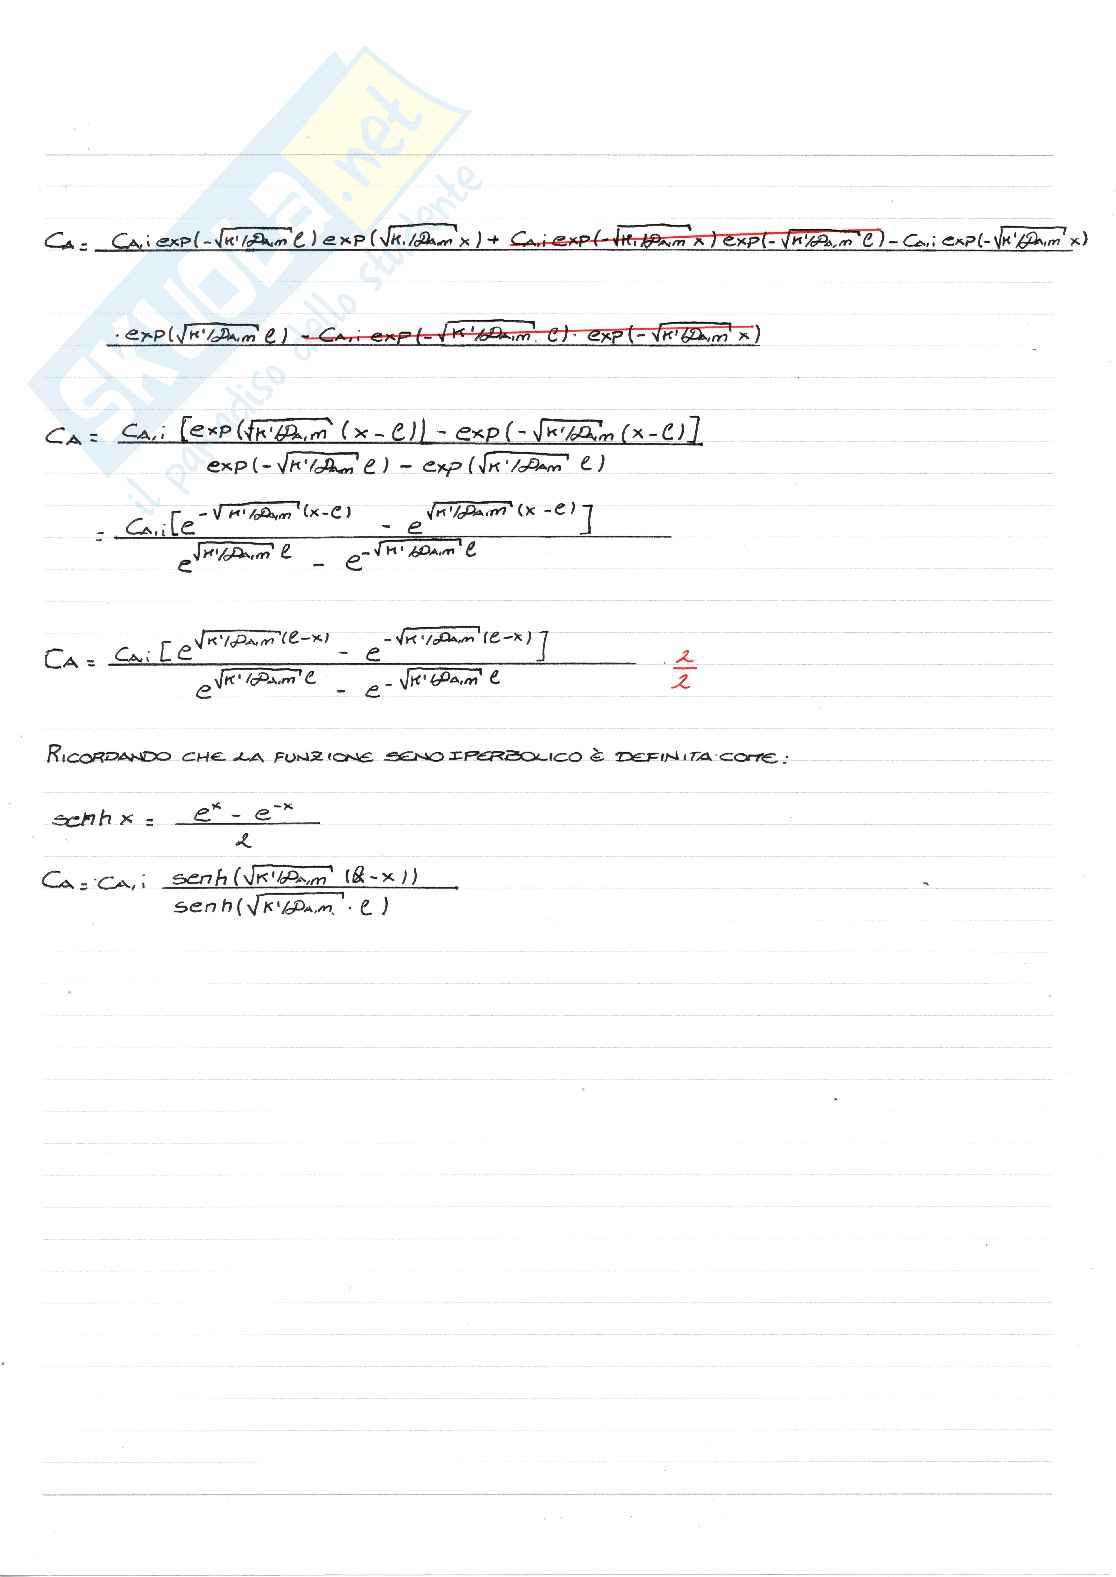 SKUOLA.net
il paradiso dello studente
C_A = C_A,i exp(-√(K'/D_A,m) ℓ) exp(√(K'/D_A,m) x) + C_A,i exp(-√(K'/D_A,m) x) exp(-√(K'/D_A,m) ℓ) - C_A,i exp(-√(K'/D_A,m) x)
· exp(√(K'/D_A,m) ℓ) - C_A,i exp(-√(K'/D_A,m) ℓ) · exp(-√(K'/D_A,m) x)
C_A = C_A,i [exp(√(K'/D_A,m) (x-ℓ)) - exp(-√(K'/D_A,m) (x-ℓ)]
exp(-√(K'/D_A,m) ℓ) - exp(√(K'/D_A,m) ℓ)
= C_A,i [e^(-√(K'/D_A,m) (x-ℓ)) - e^(√(K'/D_A,m) (x-ℓ))]
e^(√(K'/D_A,m) ℓ) - e^(-√(K'/D_A,m) ℓ)
C_A = C_A,i [e^(√(K'/D_A,m) (ℓ-x)) - e^(-√(K'/D_A,m) (ℓ-x))] · 2/2
e^(√(K'/D_A,m) ℓ) - e^(-√(K'/D_A,m) ℓ)
RICORDANDO CHE LA FUNZIONE SENO IPERBOLICO È DEFINITA COME:
senh x = e^x - e^-x
2
C_A = C_A,i senh(√(K'/D_A,m) (ℓ-x))
senh(√(K'/D_A,m) · ℓ)